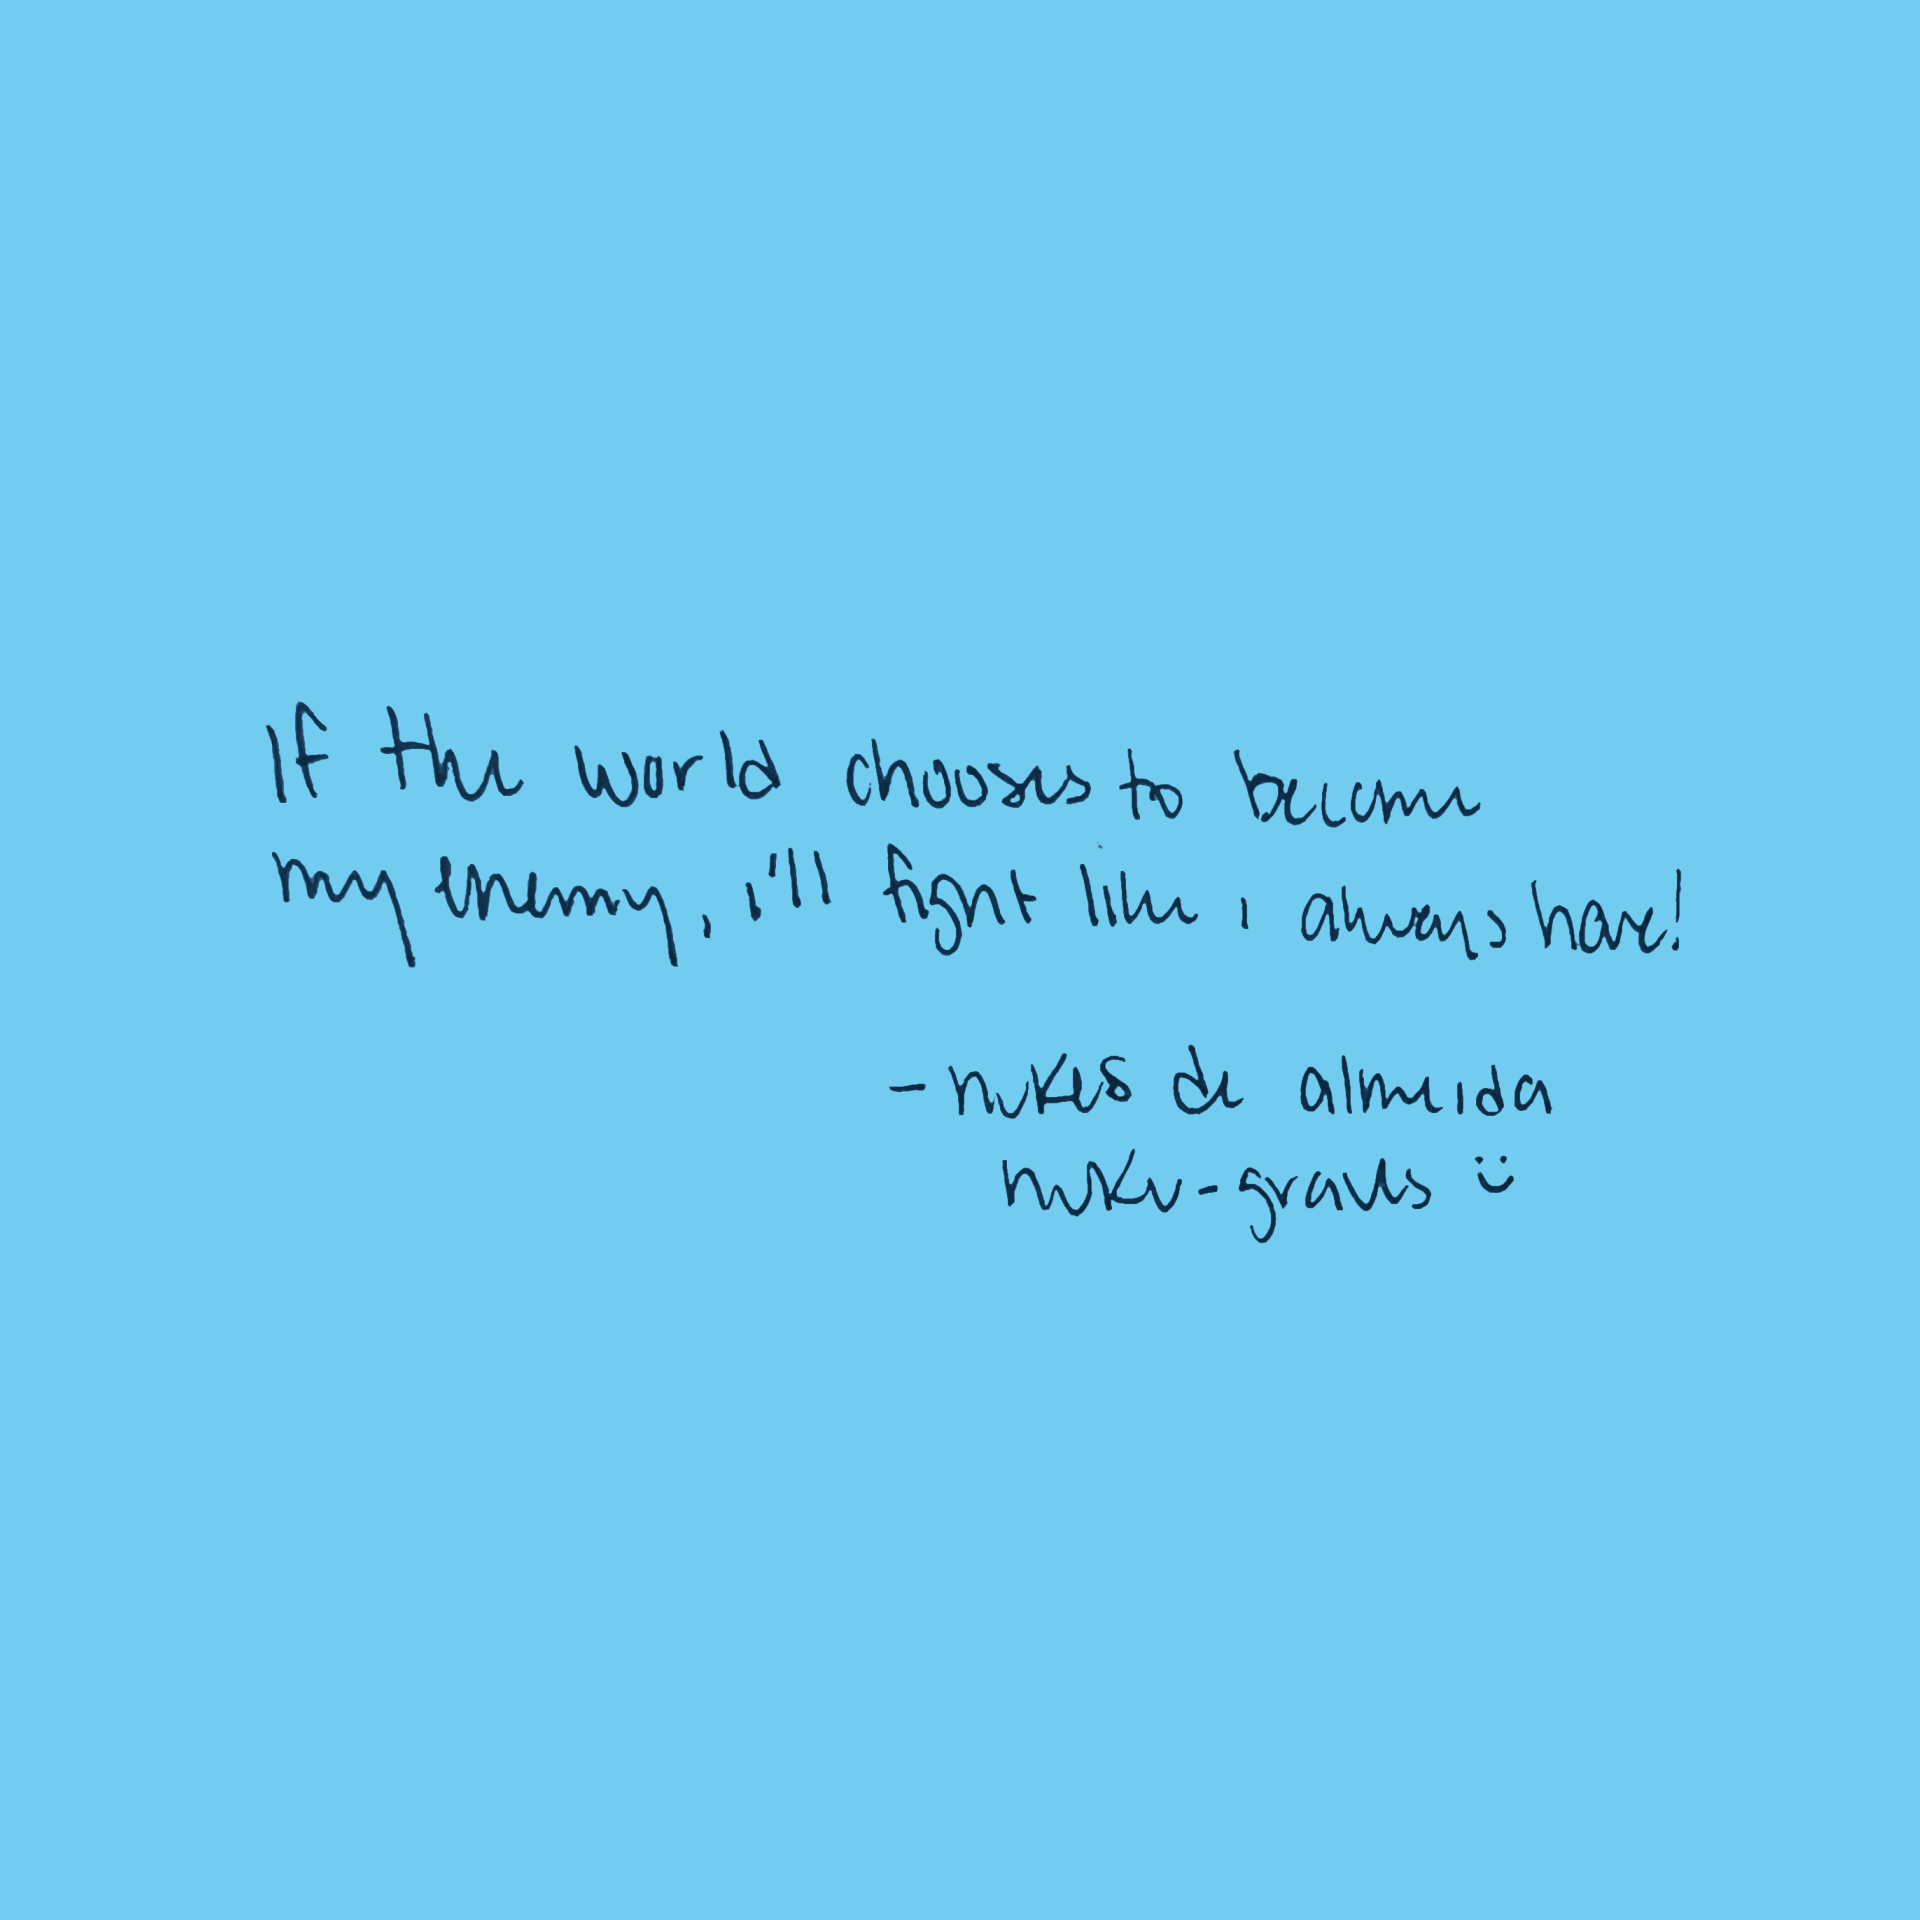 If the world chooses to become
my enemy, i'll fight like i always have!
- de almeida